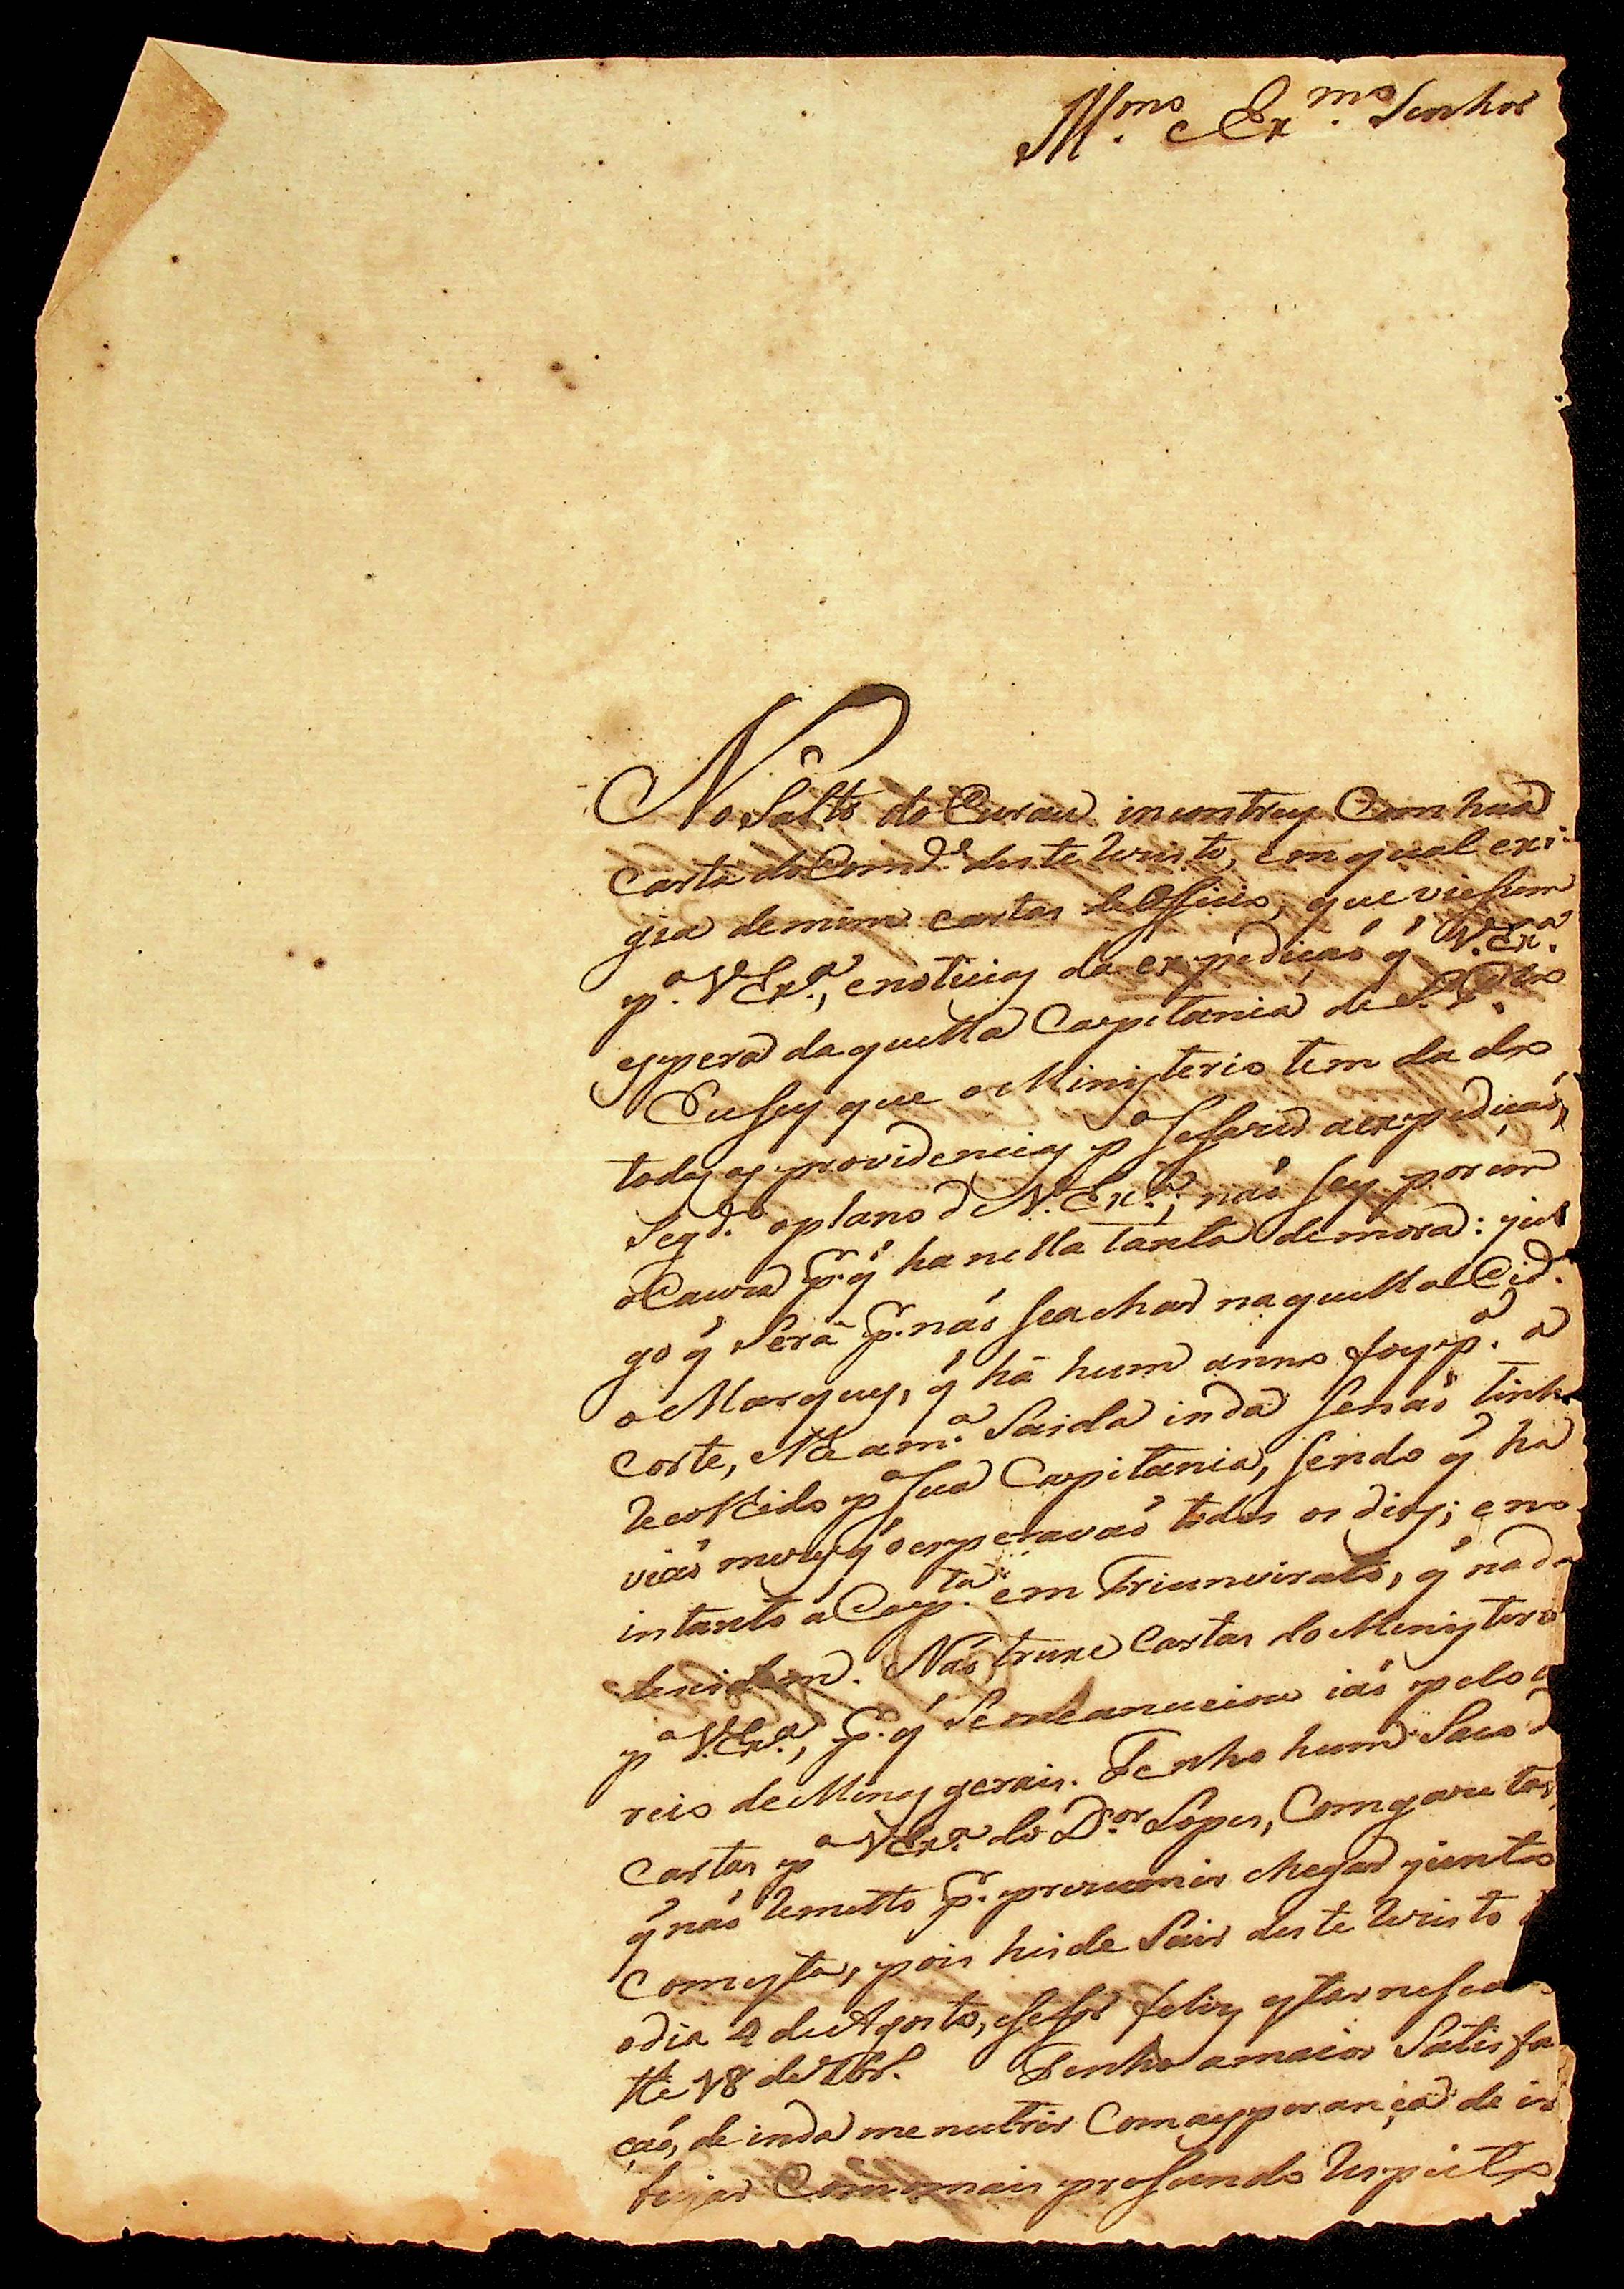 Ill.mo e Ex.mo Senhor
No Salto do Curau incontrey Com huã
Carta do Com.de deste Destrito, em q̃ qual exi-
gia demim cartas de Officio, que viessem
p.a V Ex.a, e noticias da expediçaõ q̃ V. Ex.a
espera daquella Capitania de S. Paulo
Eu sey que o Ministerio tem dado
todas as providencias p.a se fazer a expediçaõ,
Seg.do o plano d V. Ex.a; naõ sey porem
a Cauza p.r q̃ ha nella tanta demora: jul
go q̃ Será p.r naõ se achar naquella Cid.e
o Marquez, q̃ há hum anno foy p.a a
Corte, athe a m.a Saida inda se naõ tinha
recolhido p.a Sua Capitania, sendo q̃ ha
viaõ mezes q̃ o esperavaõ todos os dias; e no
intanto a Cap.ta em Triumvirato, q̃ nada
decidem. Naõ truxe Cartas do Ministerio
p.a V. Ex.a, p.r q̃ se me anuciou iaõ pelo
reio de Minas gerais. Tenho hum Saco d
Cartas p.a V Ex.a do D.or Lopes, Com gazetas,
q̃ naõ remetto p.r prezumir chegar junto
Com esta, pois heide Sair deste Destrito
o dia 4 de Agosto, e se for feliz estar nessa
the 18 de 7br.o Tenho a maior Satisfa
çaõ, de inda me nutrir Com a esperança de ir
beijar Com o mais profundo respeito